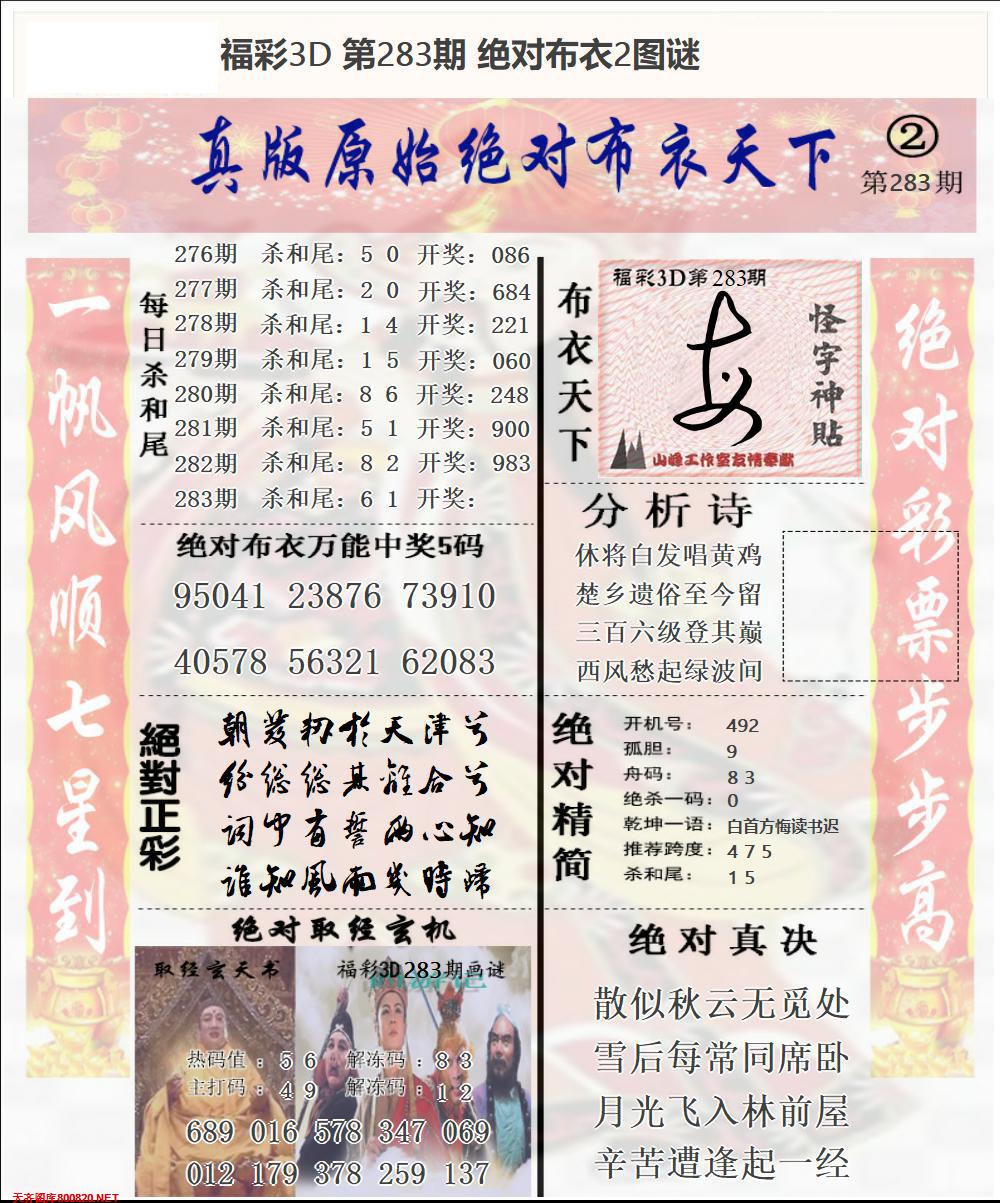 福彩3D 第283期 绝对布衣2图谜
真版原始绝对布衣天下
②
第283期
一帆风顺七星到
每日杀和尾
276期 杀和尾：5 0 开奖：086
277期 杀和尾：2 0 开奖：684
278期 杀和尾：1 4 开奖：221
279期 杀和尾：1 5 开奖：060
280期 杀和尾：8 6 开奖：248
281期 杀和尾：5 1 开奖：900
282期 杀和尾：8 2 开奖：983
283期 杀和尾：6 1 开奖：
绝对布衣万能中奖5码
95041 23876 73910
40578 56321 62083
絕對正彩
朝发轫於天津兮
纷総総其離合兮
词中有誓两心知
谁知風雨几時歸
绝对取经玄机
取经玄天书
福彩3D283期画谜
热码值：5 6 解冻码：8 3
主打码：4 9 解冻码：1 2
689 016 578 347 069
012 179 378 259 137
布衣天下
福彩3D第283期
怪字神貼
山峰工作室友情奉献
分析诗
休将白发唱黄鸡
楚乡遗俗至今留
三百六级登其巅
西风愁起绿波间
绝对精简
开机号：492
孤胆：9
舟码：8 3
绝杀一码：0
乾坤一语：白首方悔读书迟
推荐跨度：4 7 5
杀和尾：1 5
绝对真决
散似秋云无觅处
雪后每常同席卧
月光飞入林前屋
辛苦遭逢起一经
绝对彩票步步高
天齐图库800820.NET